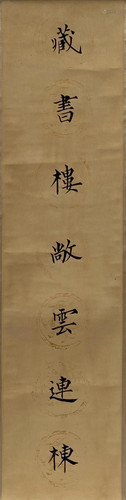 藏書樓敞雲連棟